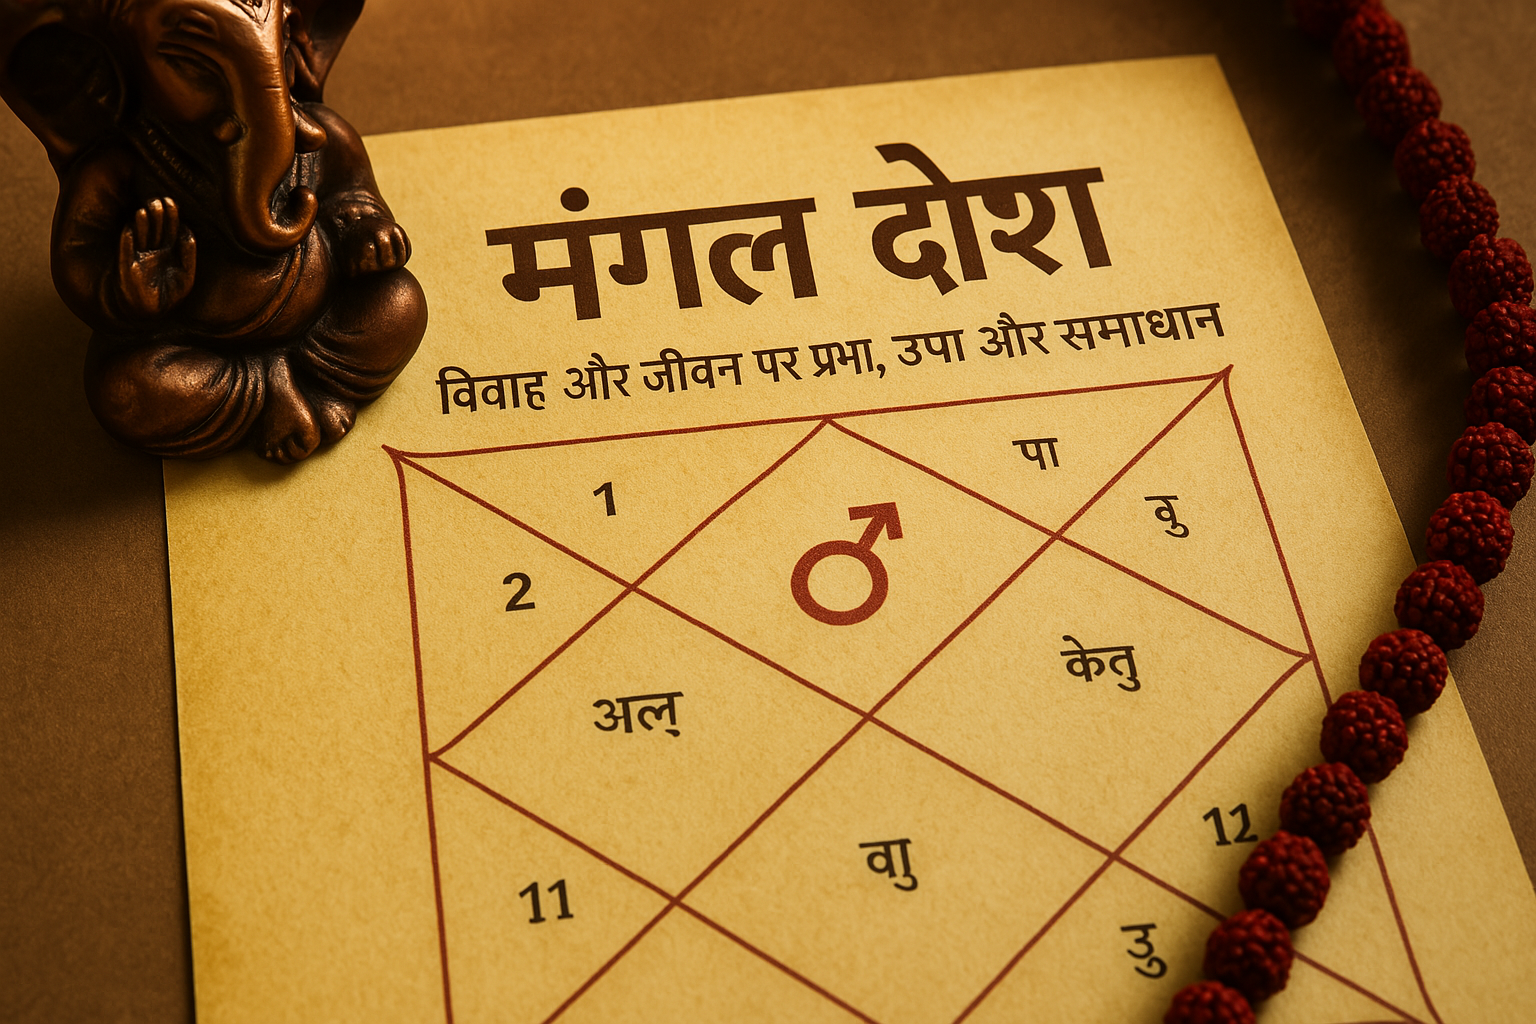 मंगल दोश
विवाह और जीवन पर प्रभा, उपा और समाधान
1
पा
वु
2
केतु
अल्
12
वाु
11
उु